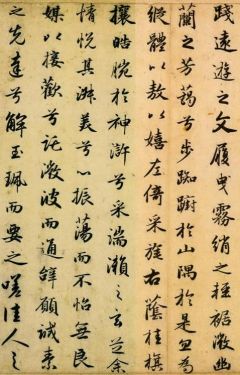 踐遠遊之文履曳霧綃之輕裾微幽
蘭之芳藹兮步踟躕於山隅於是忽焉
縱體以敖以嬉左倚采旄右蔭桂旗
攘皓腕於神滸兮采湍瀨之玄芝余
情悅其淑美兮心振蕩而不怡無良
媒以接歡兮託微波而通辭願誠素
之先達兮解玉珮而要之嗟佳人之